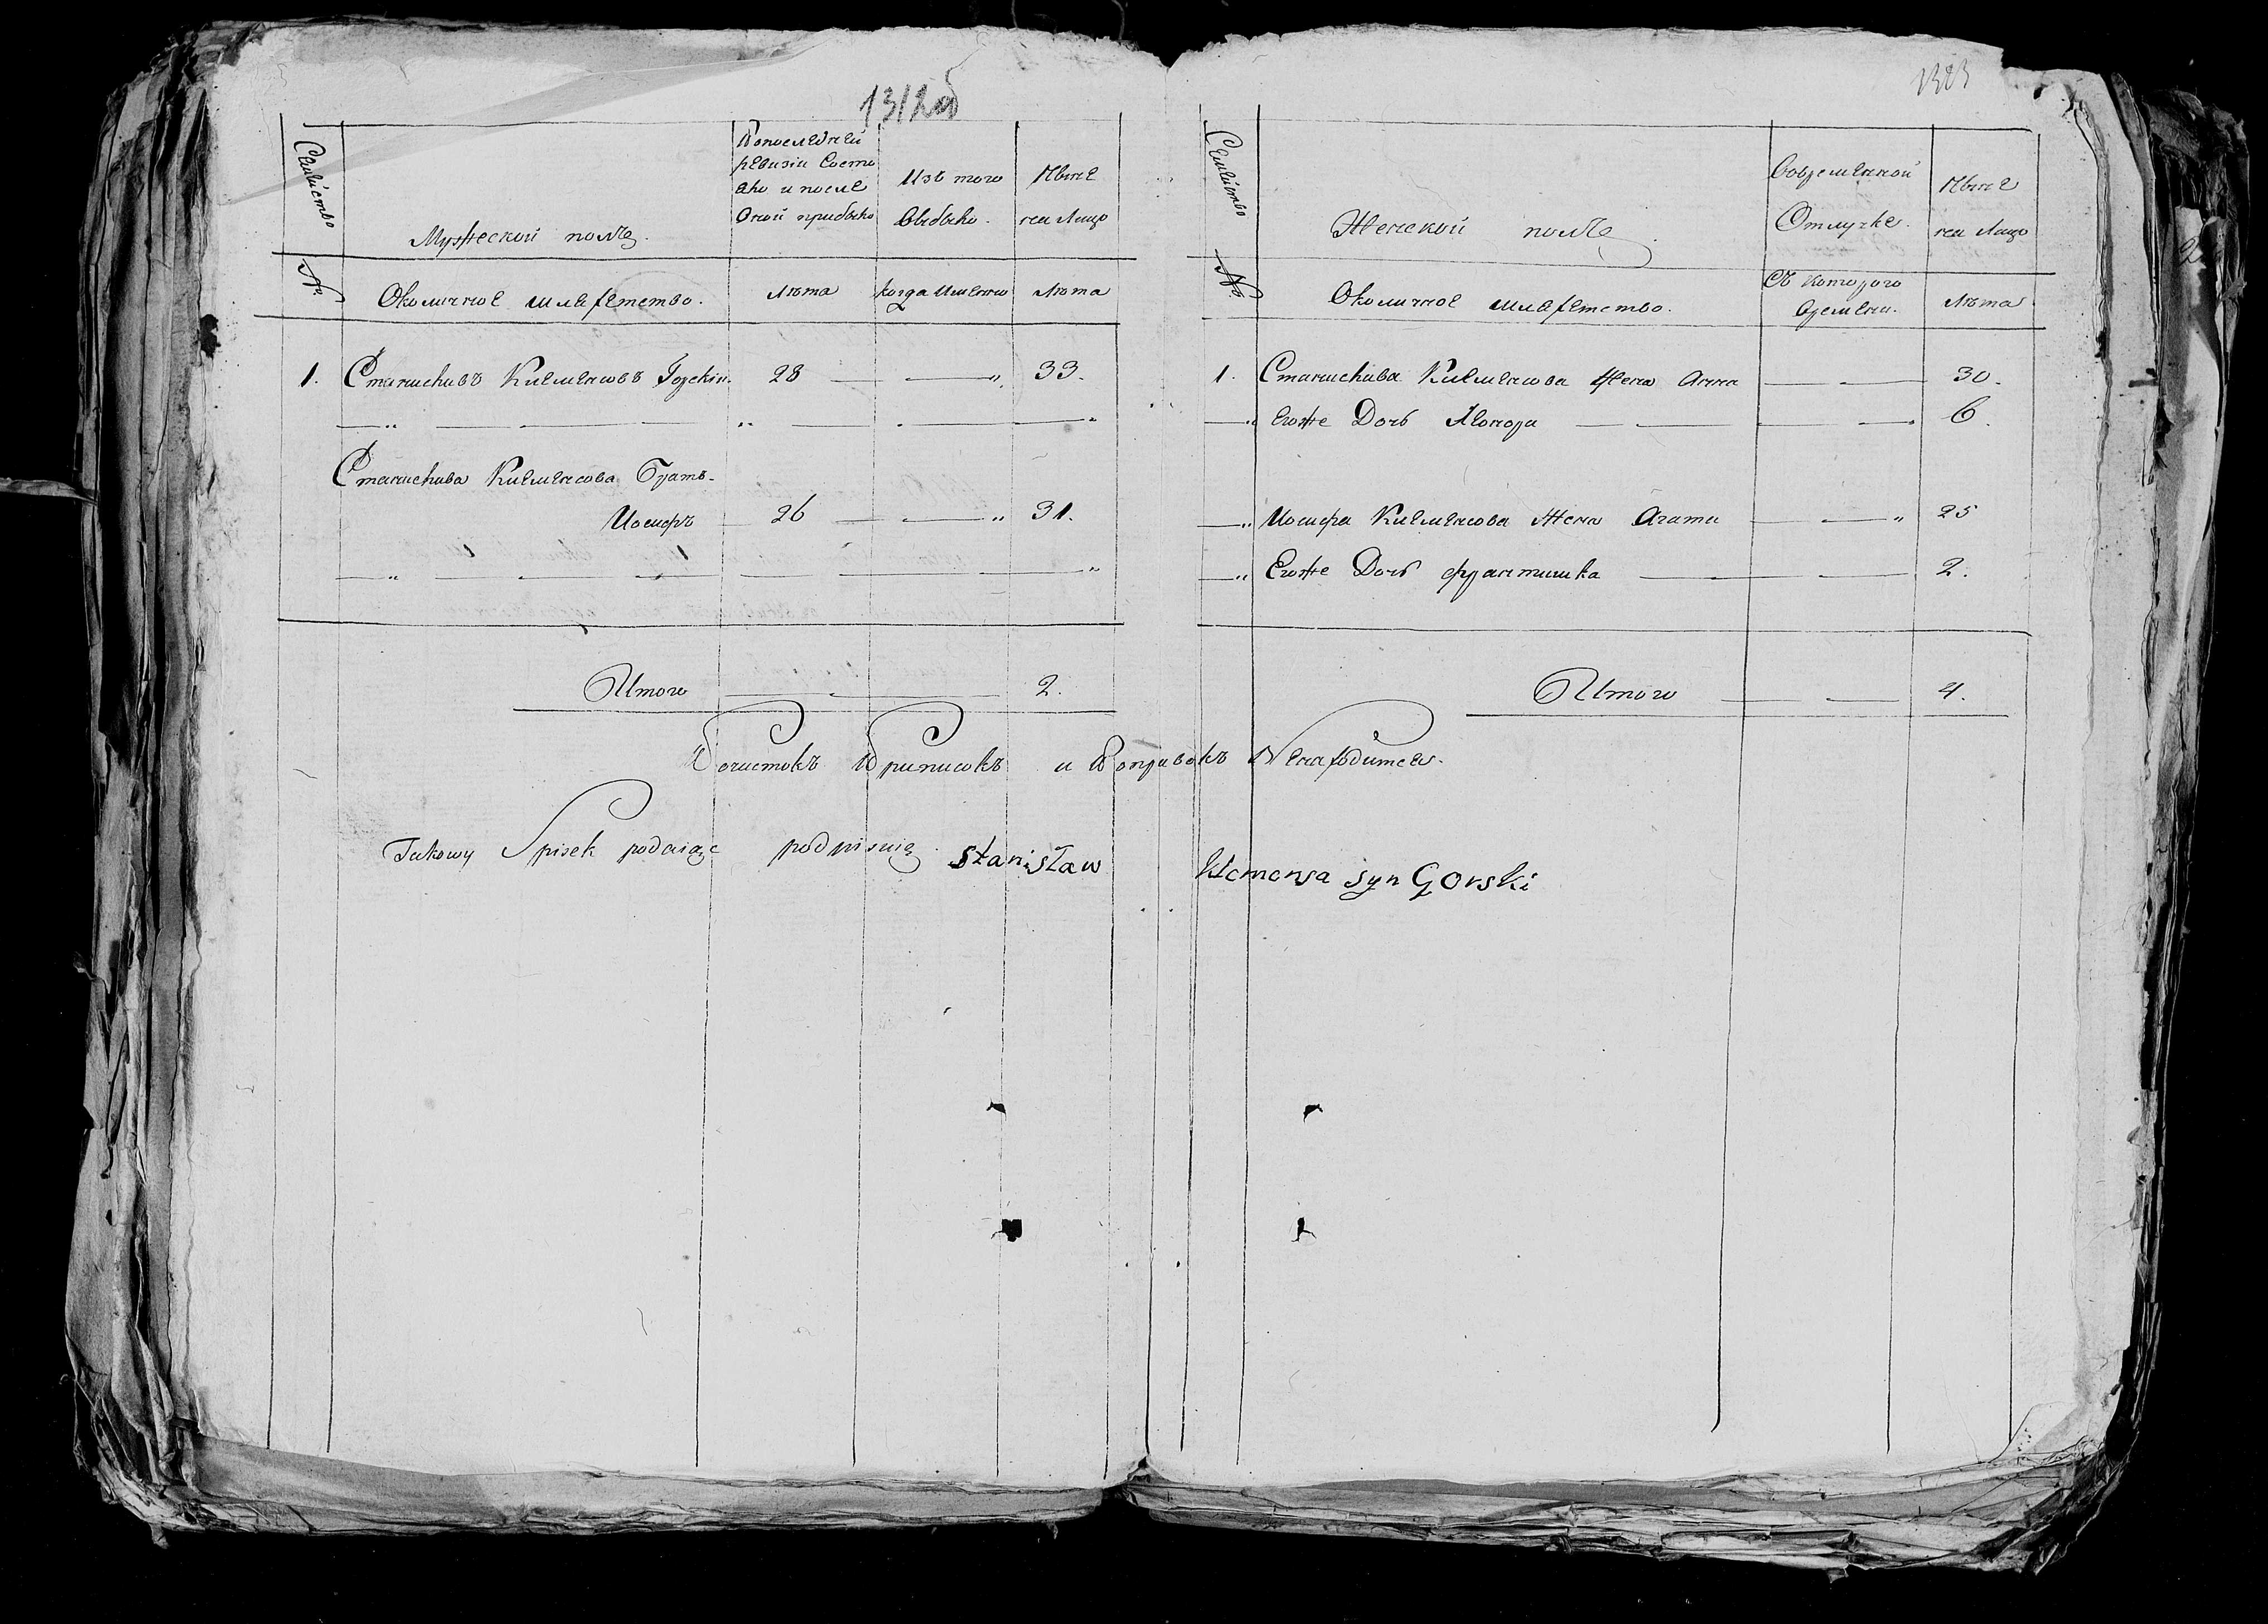 1312об
1313
Семѣйство
Мужескои полъ.
Попоследнеи
ревизіи Состо
яло и после
Оной прибыло
Изъ того
Выбыло.
Нынѣ
на Лицо
№
Околичное шляхетство.
Лѣта
когда Именно
Лѣта
1. Станиславъ Клеменсовъ Горскій. 28 33.
Станислава Клеменсова Братъ.
Иосифъ 26 31.
Итого 2.
Семѣйство
Женскои полъ.
Вовременной
Отлучке.
Нынѣ
на Лицо
№
Околичное шляхетство.
Съ которого
времени.
Лѣта
1. Станислава Клеменсова Жена Анна 30.
Егоже Дочь 6.
Иосифа Клеменсова Жена Агата 25
Егоже Дочь Францишка 2.
Итого 4.
Почистокъ Приписокъ и Поправокъ Ненаходится.
Takowy Spisek podaiąc podpisuię Stanisław Klemensa syn Gorski